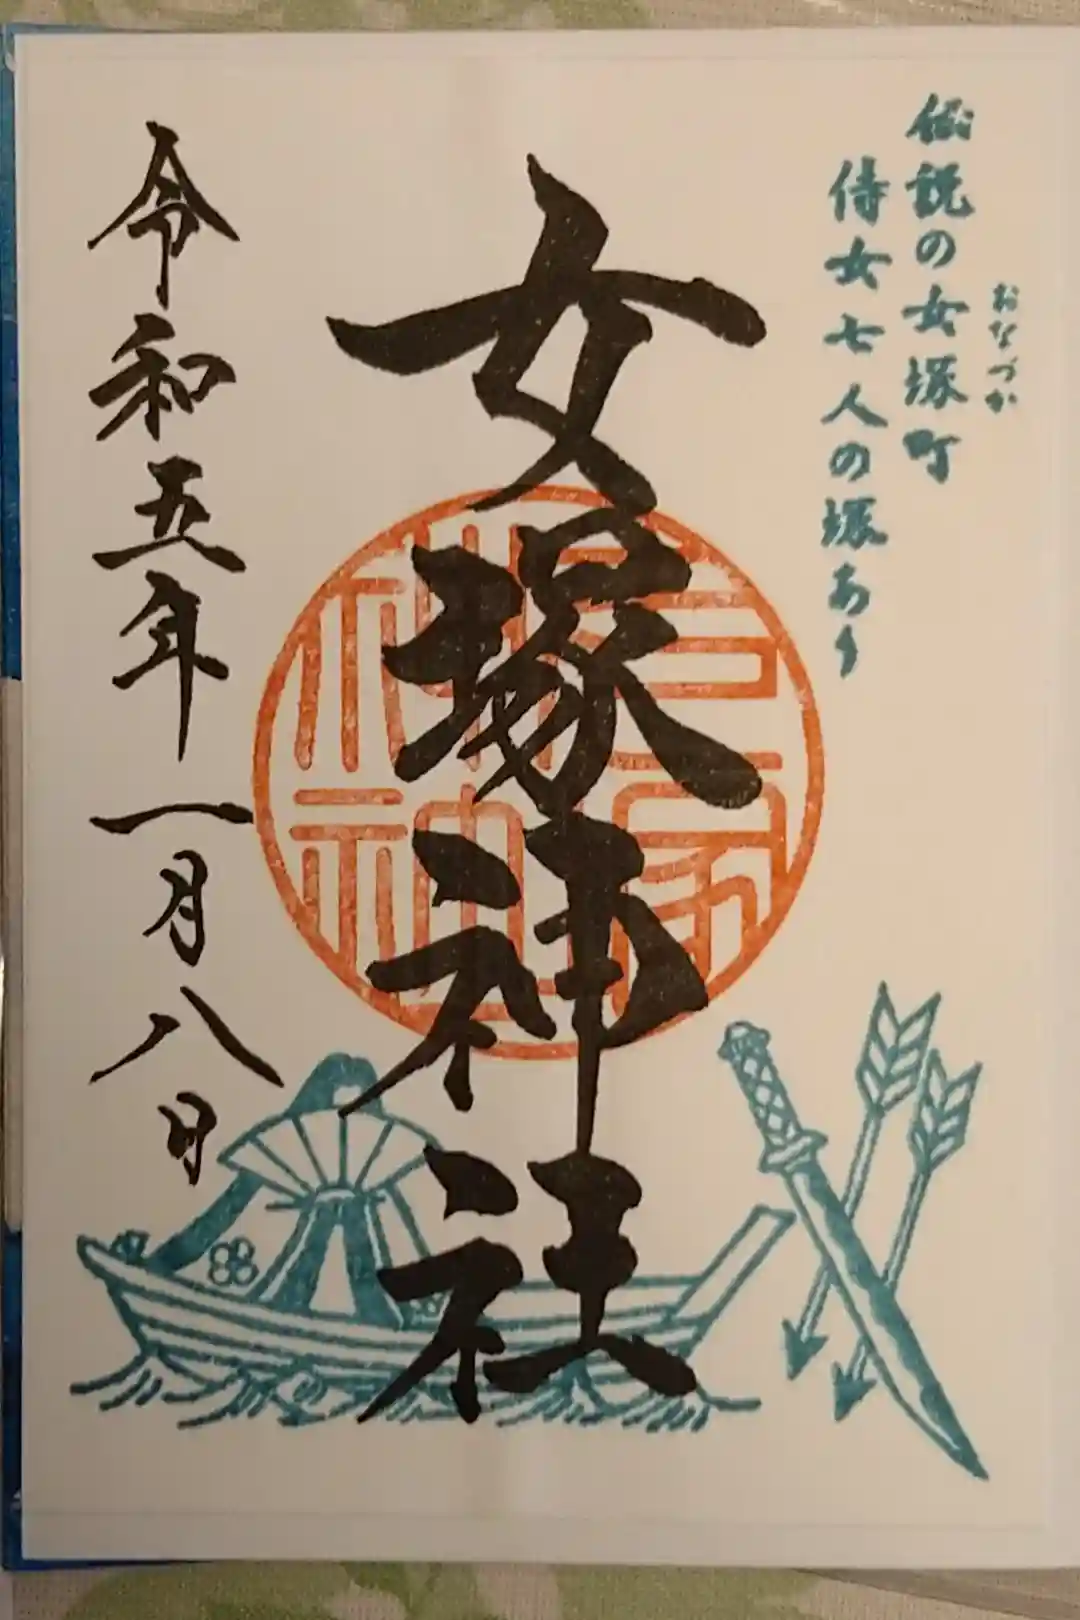 伝説の女塚町
おなづか
侍女七人の塚あり
女塚神社
令和五年一月八日